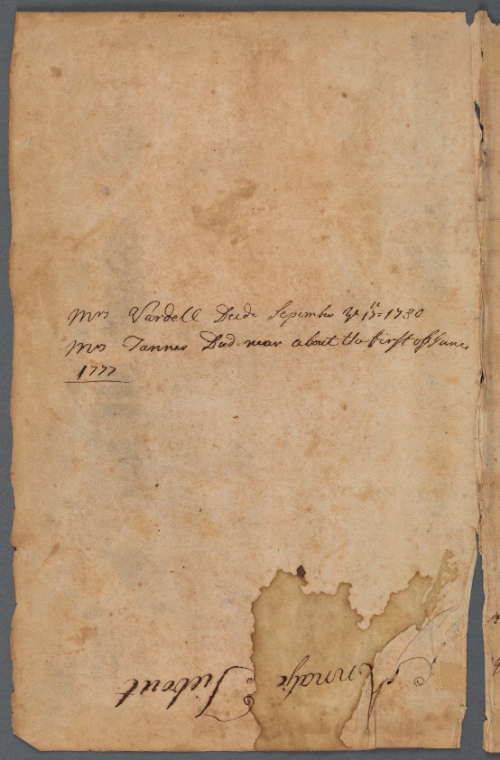 Mrs Vardell Deide Sepember ye 17th 1780
Mrs Tanner Died near about the first of June
1777
Annatje Tiebout